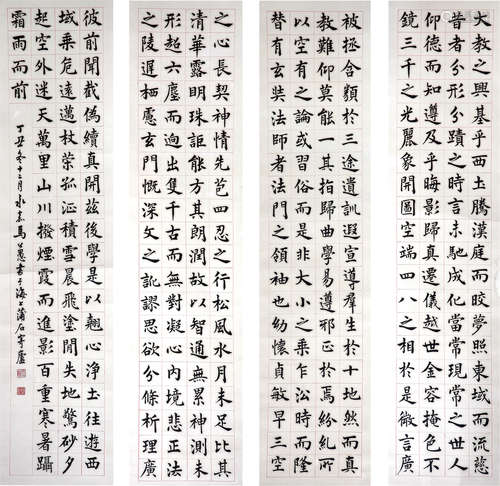 大教之興基乎西土騰漢庭而皎夢照東域而流慈
昔者分形分蹟之時言未馳成化當常現常之世人
仰德而知遵及乎晦影歸真遷儀越世金容掩色不
鏡三千之光麗象開圖空端四八之相於是微言廣
被拯含類於三途遺訓遐宣導群生於十地然而真
教難仰莫能一其指歸曲學易遵邪正於焉紛糺所
以空有之論或習俗而是非大小之乘乍沿時而隆
替有玄奘法師者法門之領袖也幼懷貞敏早三空
之心長契神情先苞四忍之行松風水月未足比其
清華露明珠詎能方其朗潤故以智通無累神測未
形超六塵而迥出隻千古而無對凝心內境悲正法
之陵遲栖慮玄門慨深文之訛謬思欲分條析理廣
彼前聞截偽續真開茲後學是以翹心淨土往遊西
域乘危遠邁杖策孤征積雪晨飛塗閒失地驚砂夕
起空外迷天萬里山川撥煙霞而進影百重寒暑躡
霜雨而前
丁丑冬十二月永嘉馬公愚書于海上蒲石寄廬